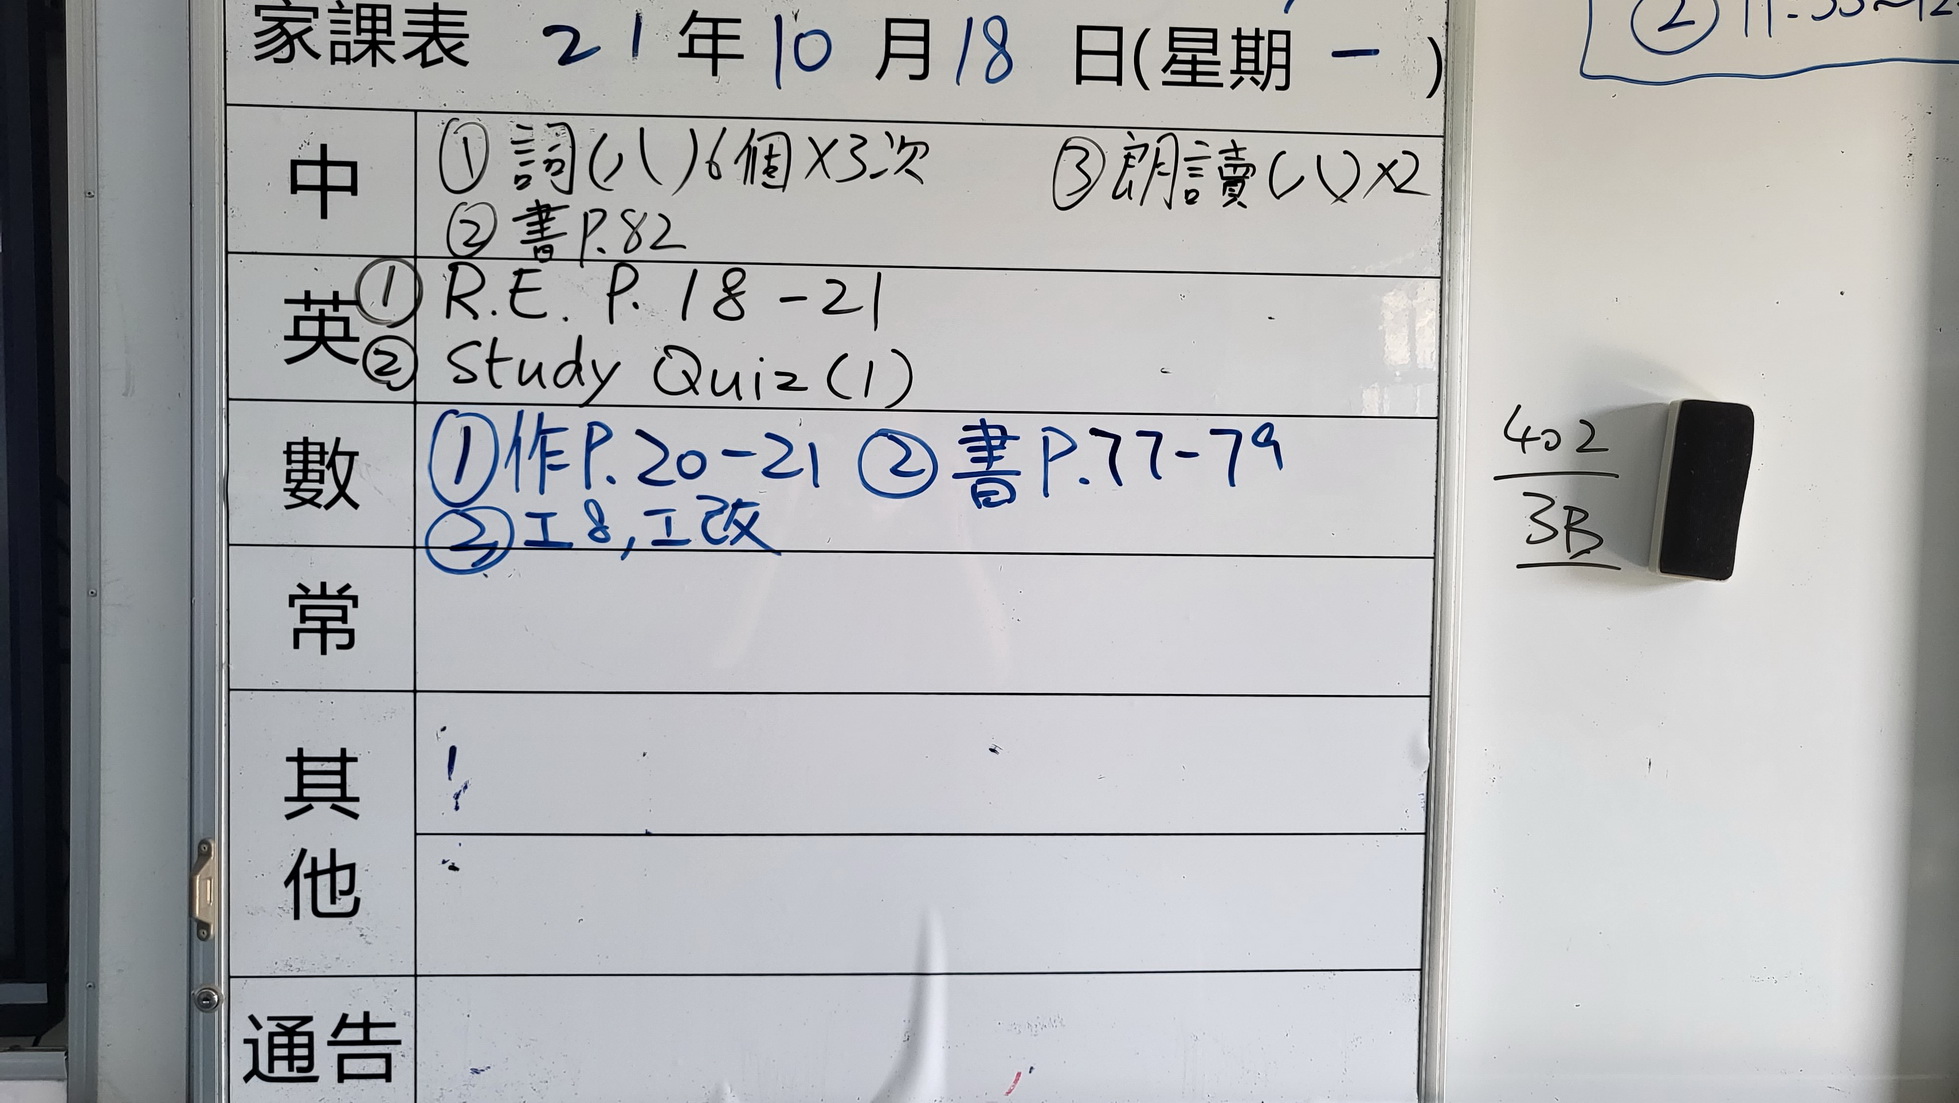 家課表 21年10月18日(星期一)
中 ①詞(八)6個×3次 ③朗讀(八)×2
②書P.82
英 ① R.E. P.18-21
② Study Quiz(1)
數 ①作P.20-21 ②書P.77-79
②工8,工改
常
其他
通告
402
3B